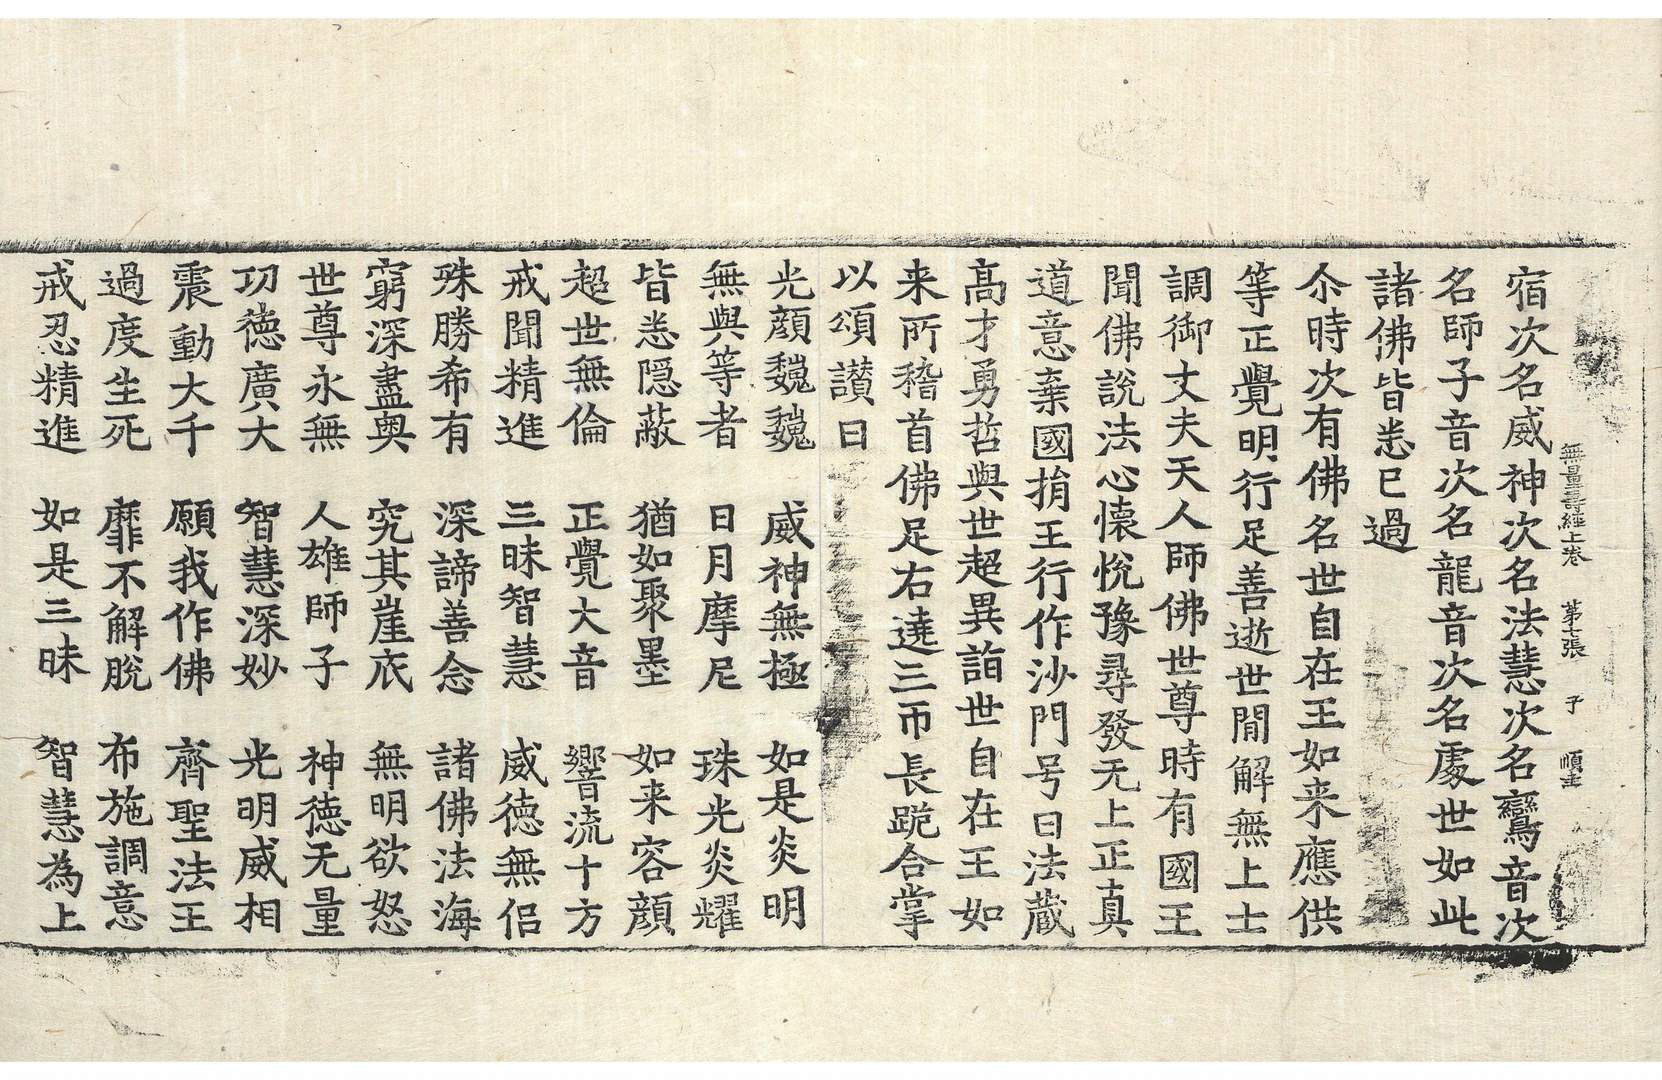 無量壽經上卷 第七張 子
宿次名威神次名法慧次名鸞音次
名師子音次名龍音次名處世如此
諸佛皆悉已過
尒時次有佛名世自在王如来應供
等正覺明行足善逝世閒解無上士
調御丈夫天人師佛世尊時有國王
聞佛說法心懷悅豫尋發无上正真
道意棄國捐王行作沙門号曰法蔵
高才勇哲與世超異詣世自在王如
来所稽首佛足右遶三帀長跪合掌
以頌讃曰
光顔巍巍 威神無極 如是炎明
無與等者 日月摩尼 珠光炎耀
皆悉隠蔽 猶如聚墨 如来容顔
超世無倫 正覺大音 響流十方
戒聞精進 三昧智慧 威徳無侶
殊勝希有 深諦善念 諸佛法海
窮深盡奥 究其崖底 無明欲怒
世尊永無 人雄師子 神徳无量
功徳廣大 智慧深妙 光明威相
震動大千 願我作佛 齊聖法王
過度生死 靡不解脫 布施調意
戒忍精進 如是三昧 智慧為上